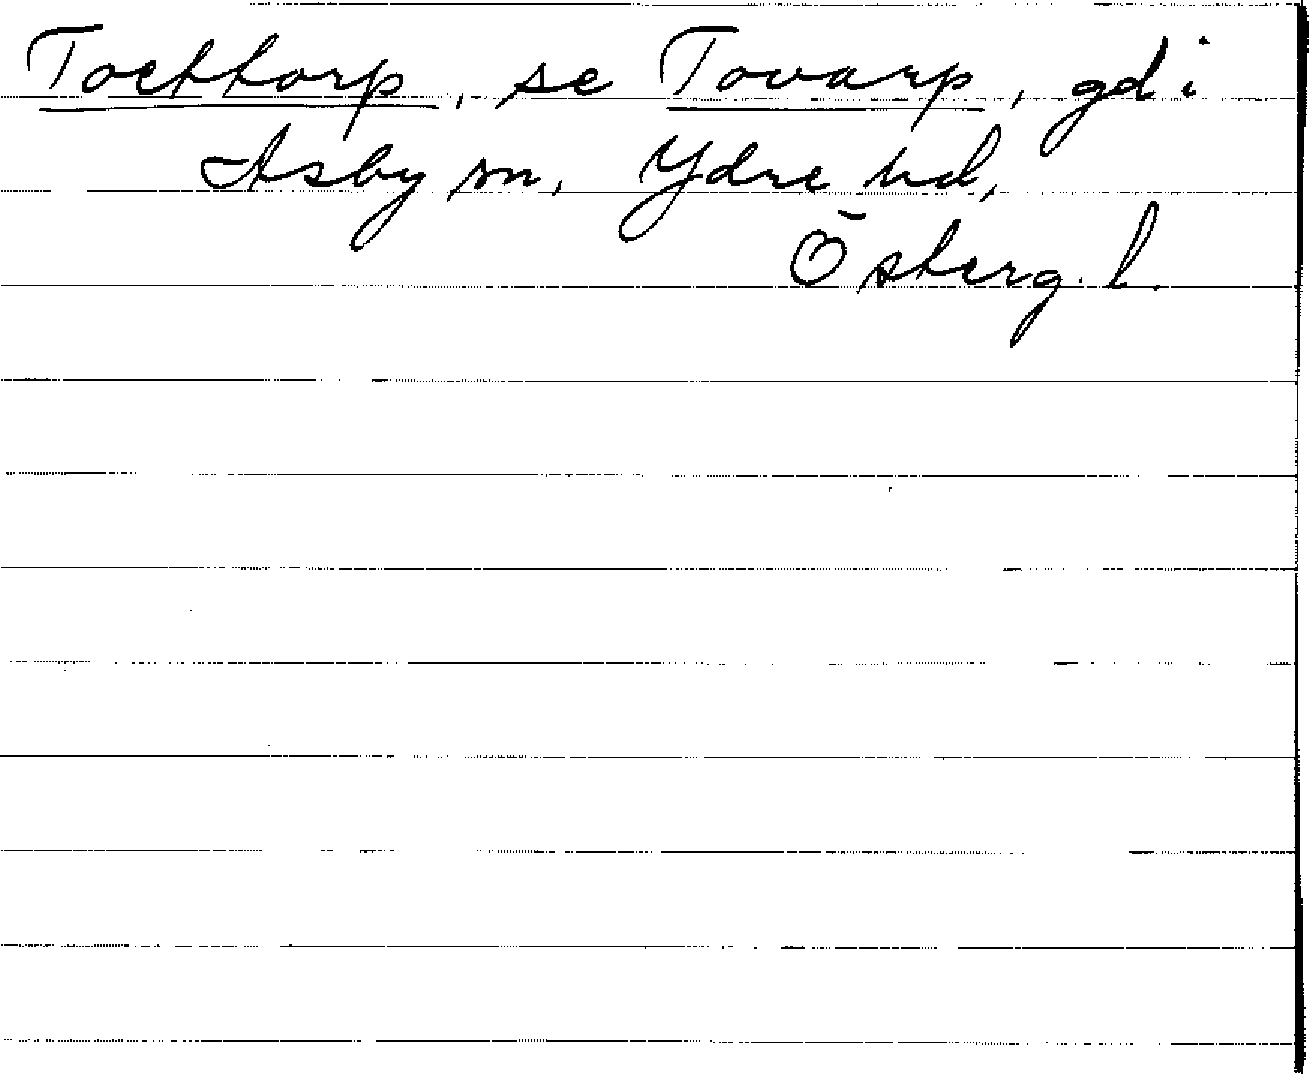 Toettorp, se Tovarp, gd i
Asby sn, Ydre hd,
Österg. l.